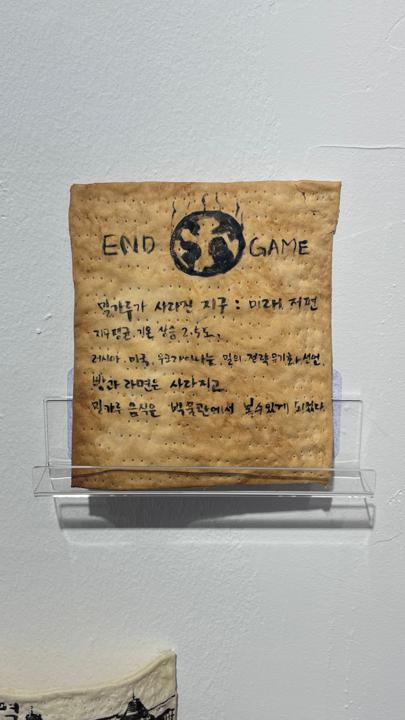 END GAME
밀가루가 사라진 지구 : 미래, 저편
지구 평균 기온 상승 2.5도,
러시아, 미국, 우크라이나는 밀의 전략 무기화 선언.
빵과 라면은 사라지고
밀가루 음식은 박물관에서 볼수있게 되었다.